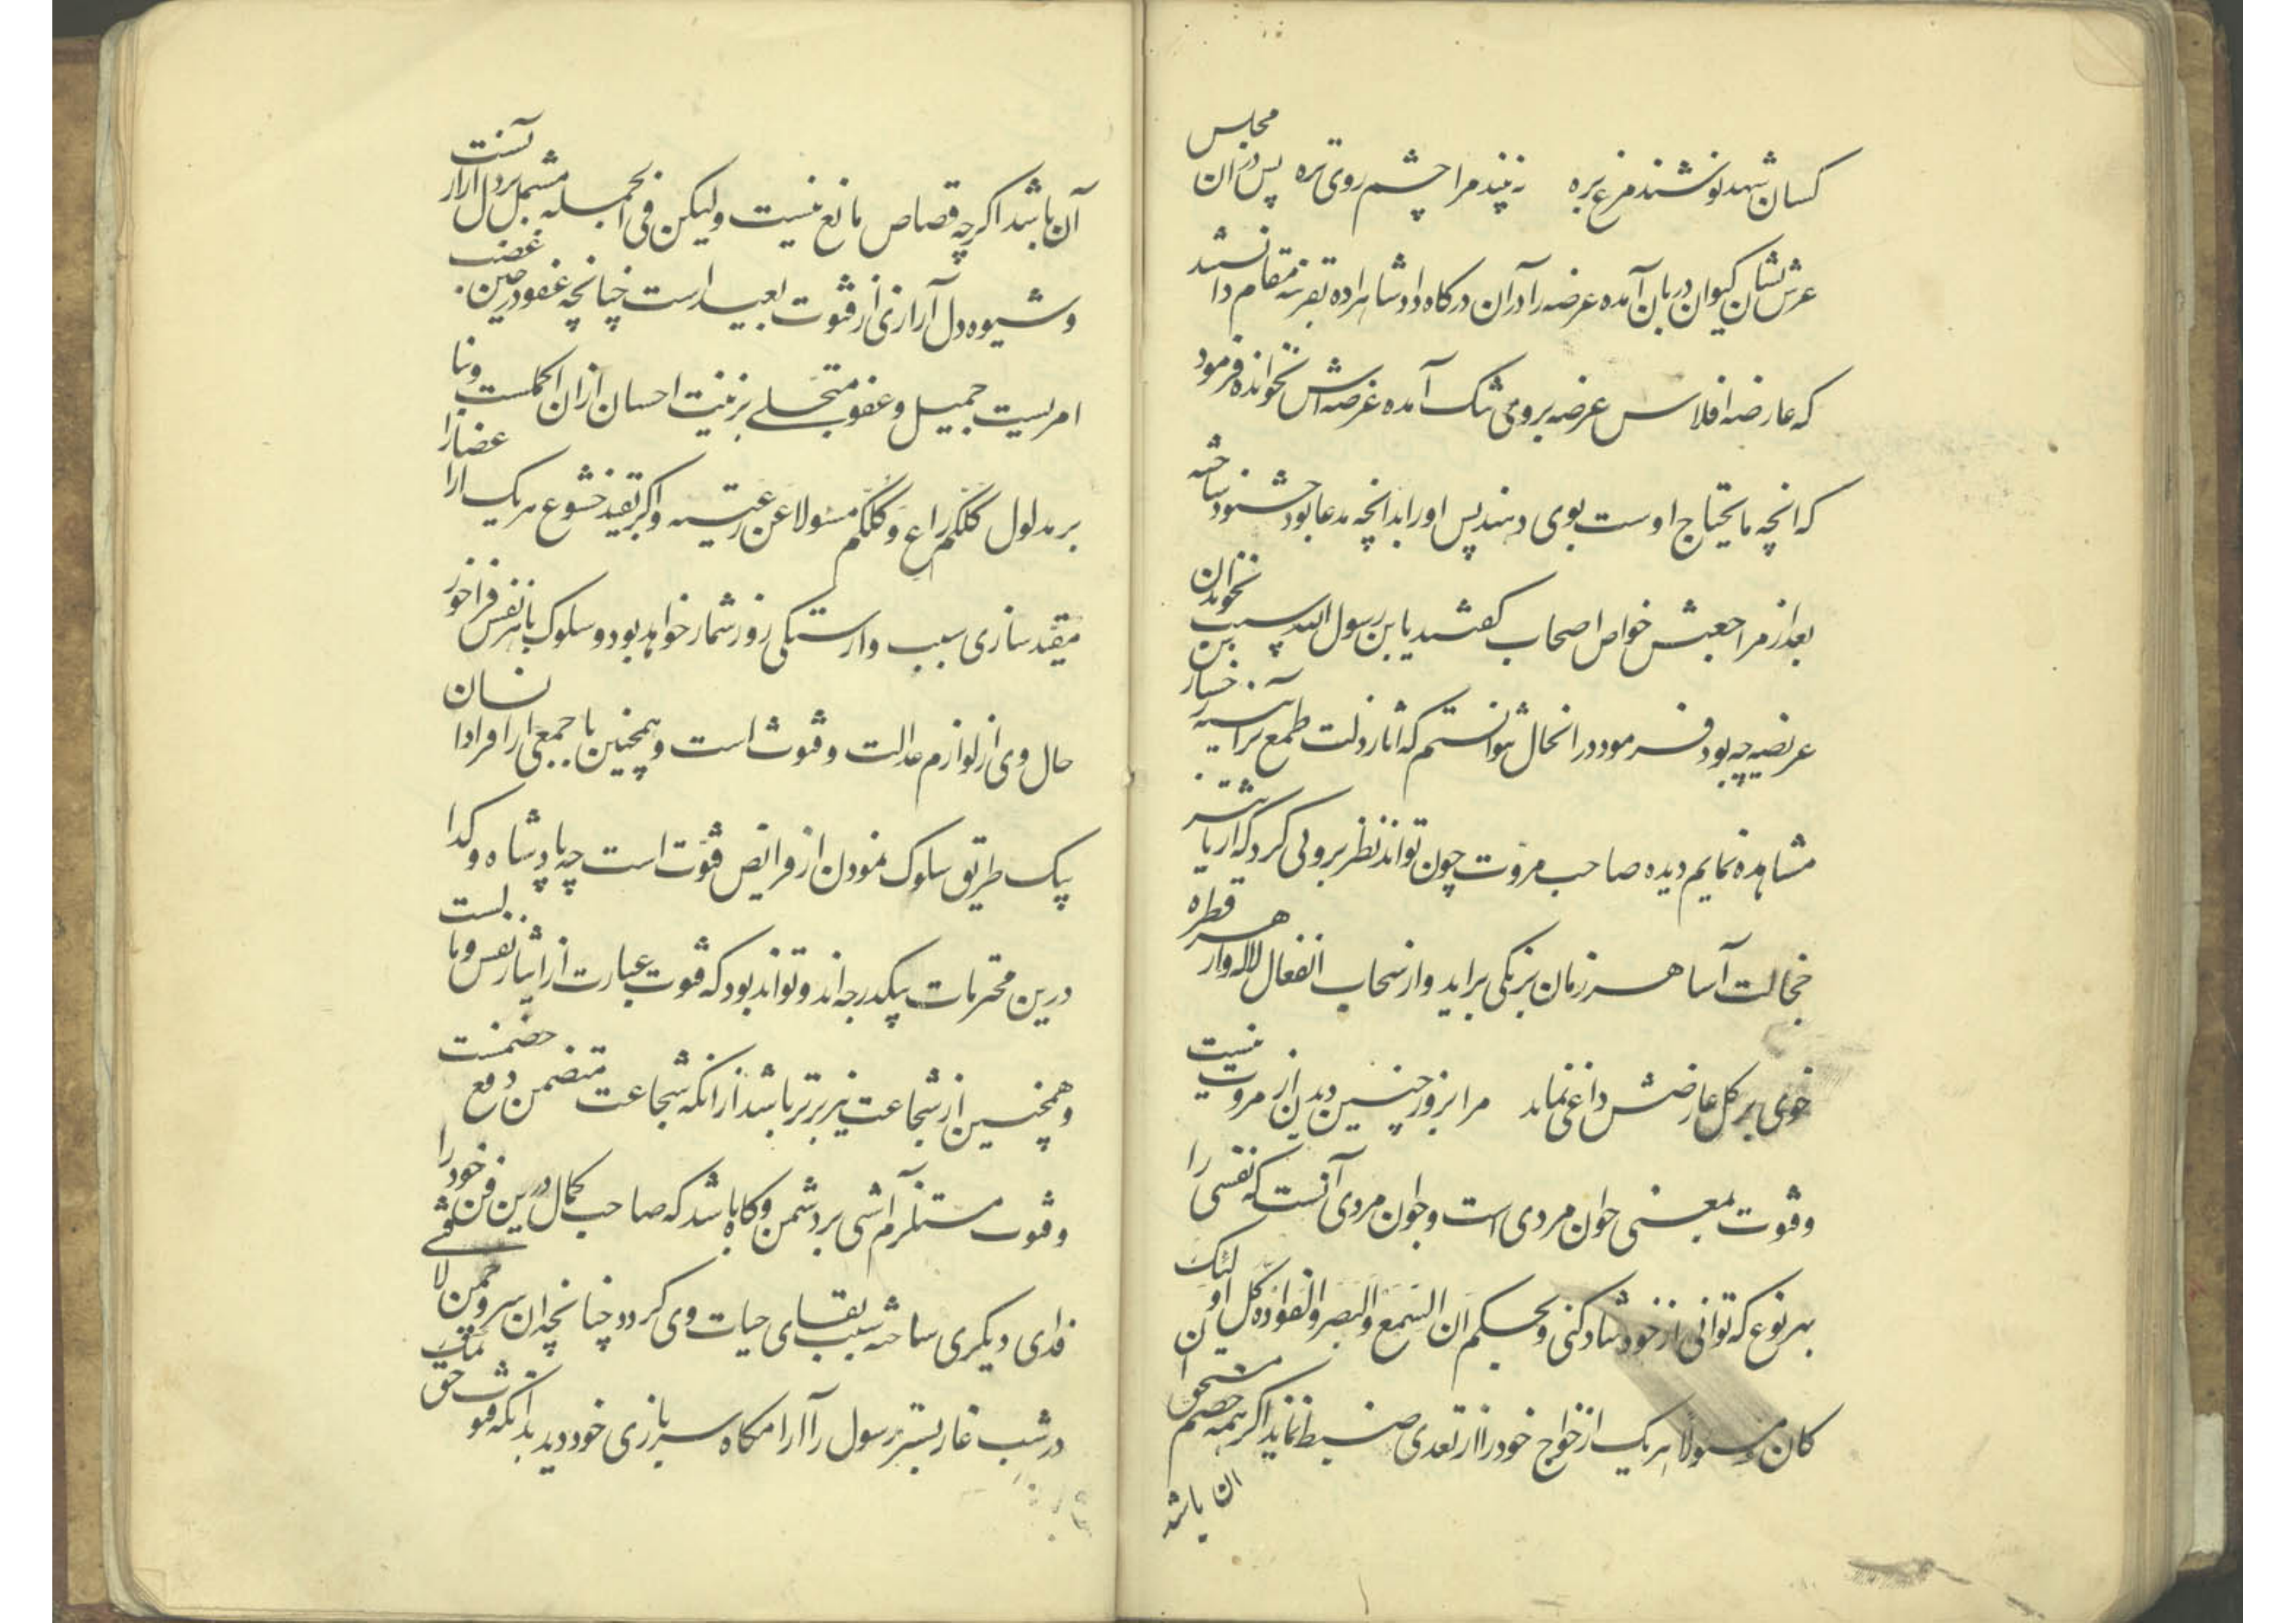 کسان شهد نوشند مرغ بره نه بیند مرا چشم روی تره پس دران مجلس
عرش نشان کیوان دربان آمده عرضه را دران درکاه داد شاهزاده بقرینه مقام دانستند
که عارضه افلاس عرضه بر وی تنک آمده عرضه اش نخوانده فرمود
که انچه مایحتاج اوست بوی دهند پس اورا بدانچه مدعا بود خشنود ساخته
بعد از مراجعتش خواص اصحاب کفتند یا بن رسول الله سبب نخواندن
عریضه چه بود فرمود در انحال نتوانستم که اثار ذلت طمع بر آیینه رخسار
مشاهده نمایم دیده صاحب مروت چون تواند نظر بروی کرد که از یا
خجالت آسا هر زمان برنکی براید و از سحاب انفعال لاله وار هر قطره
خوی بر کل عارضش داغی نماید مرا بروز چنین دیدن از مروت نیست
وفتوت بمعنی جوان مردی است وجوان مردی آنست که نفسی را
بهر نوع که توانی از خود شاد کنی وبحکم ان السمع والبصر والفواد کل اولئک
کان مسولا هر یک از خود را از تعدی ضبط نماید اکر همه خصم مستحق ان باشد
آن باشد اکرچه قصاص مانع نیست ولیکن فی الجمله مشتمل بر دل آزار
وشیوه دل آزاری از فتوت بعید است چنانچه عفو در حین غضب
امریست جمیل وعفو متحلی بزینت احسان ازان اکملست وبنا
بر مدلول کلکم راع وکلکم مسولا عن رعیته واکر بقید خشوع هر یک
مقید سازی سبب وارستکی روز شمار خواهد بود وسلوک با هر نفس فراخور
حال وی از لوازم عدالت وفتوت است وهمچنین با جمعی از افراد انسان
بیک طریق سلوک نمودن از فرایض فتوت است چه پادشاه وکدا
درین محترمات بیکدرجه اند وتواند بود که فتوت عبارت از ایثار نفس
وهمچنین از شجاعت نیز برتر باشد ازانکه شجاعت متضمن دفع خصمست
وفتوت مستلزم آشتی بر دشمن وکاه باشد که صاحب کمال درین فن خود را
فدای دیکری ساخته سبب بقای حیات وی کردد چنانچه ان سرو چمن لا فتی
در شب غار بستر رسول را آرامکاه سربازی خود دید بدانکه فتوت حق